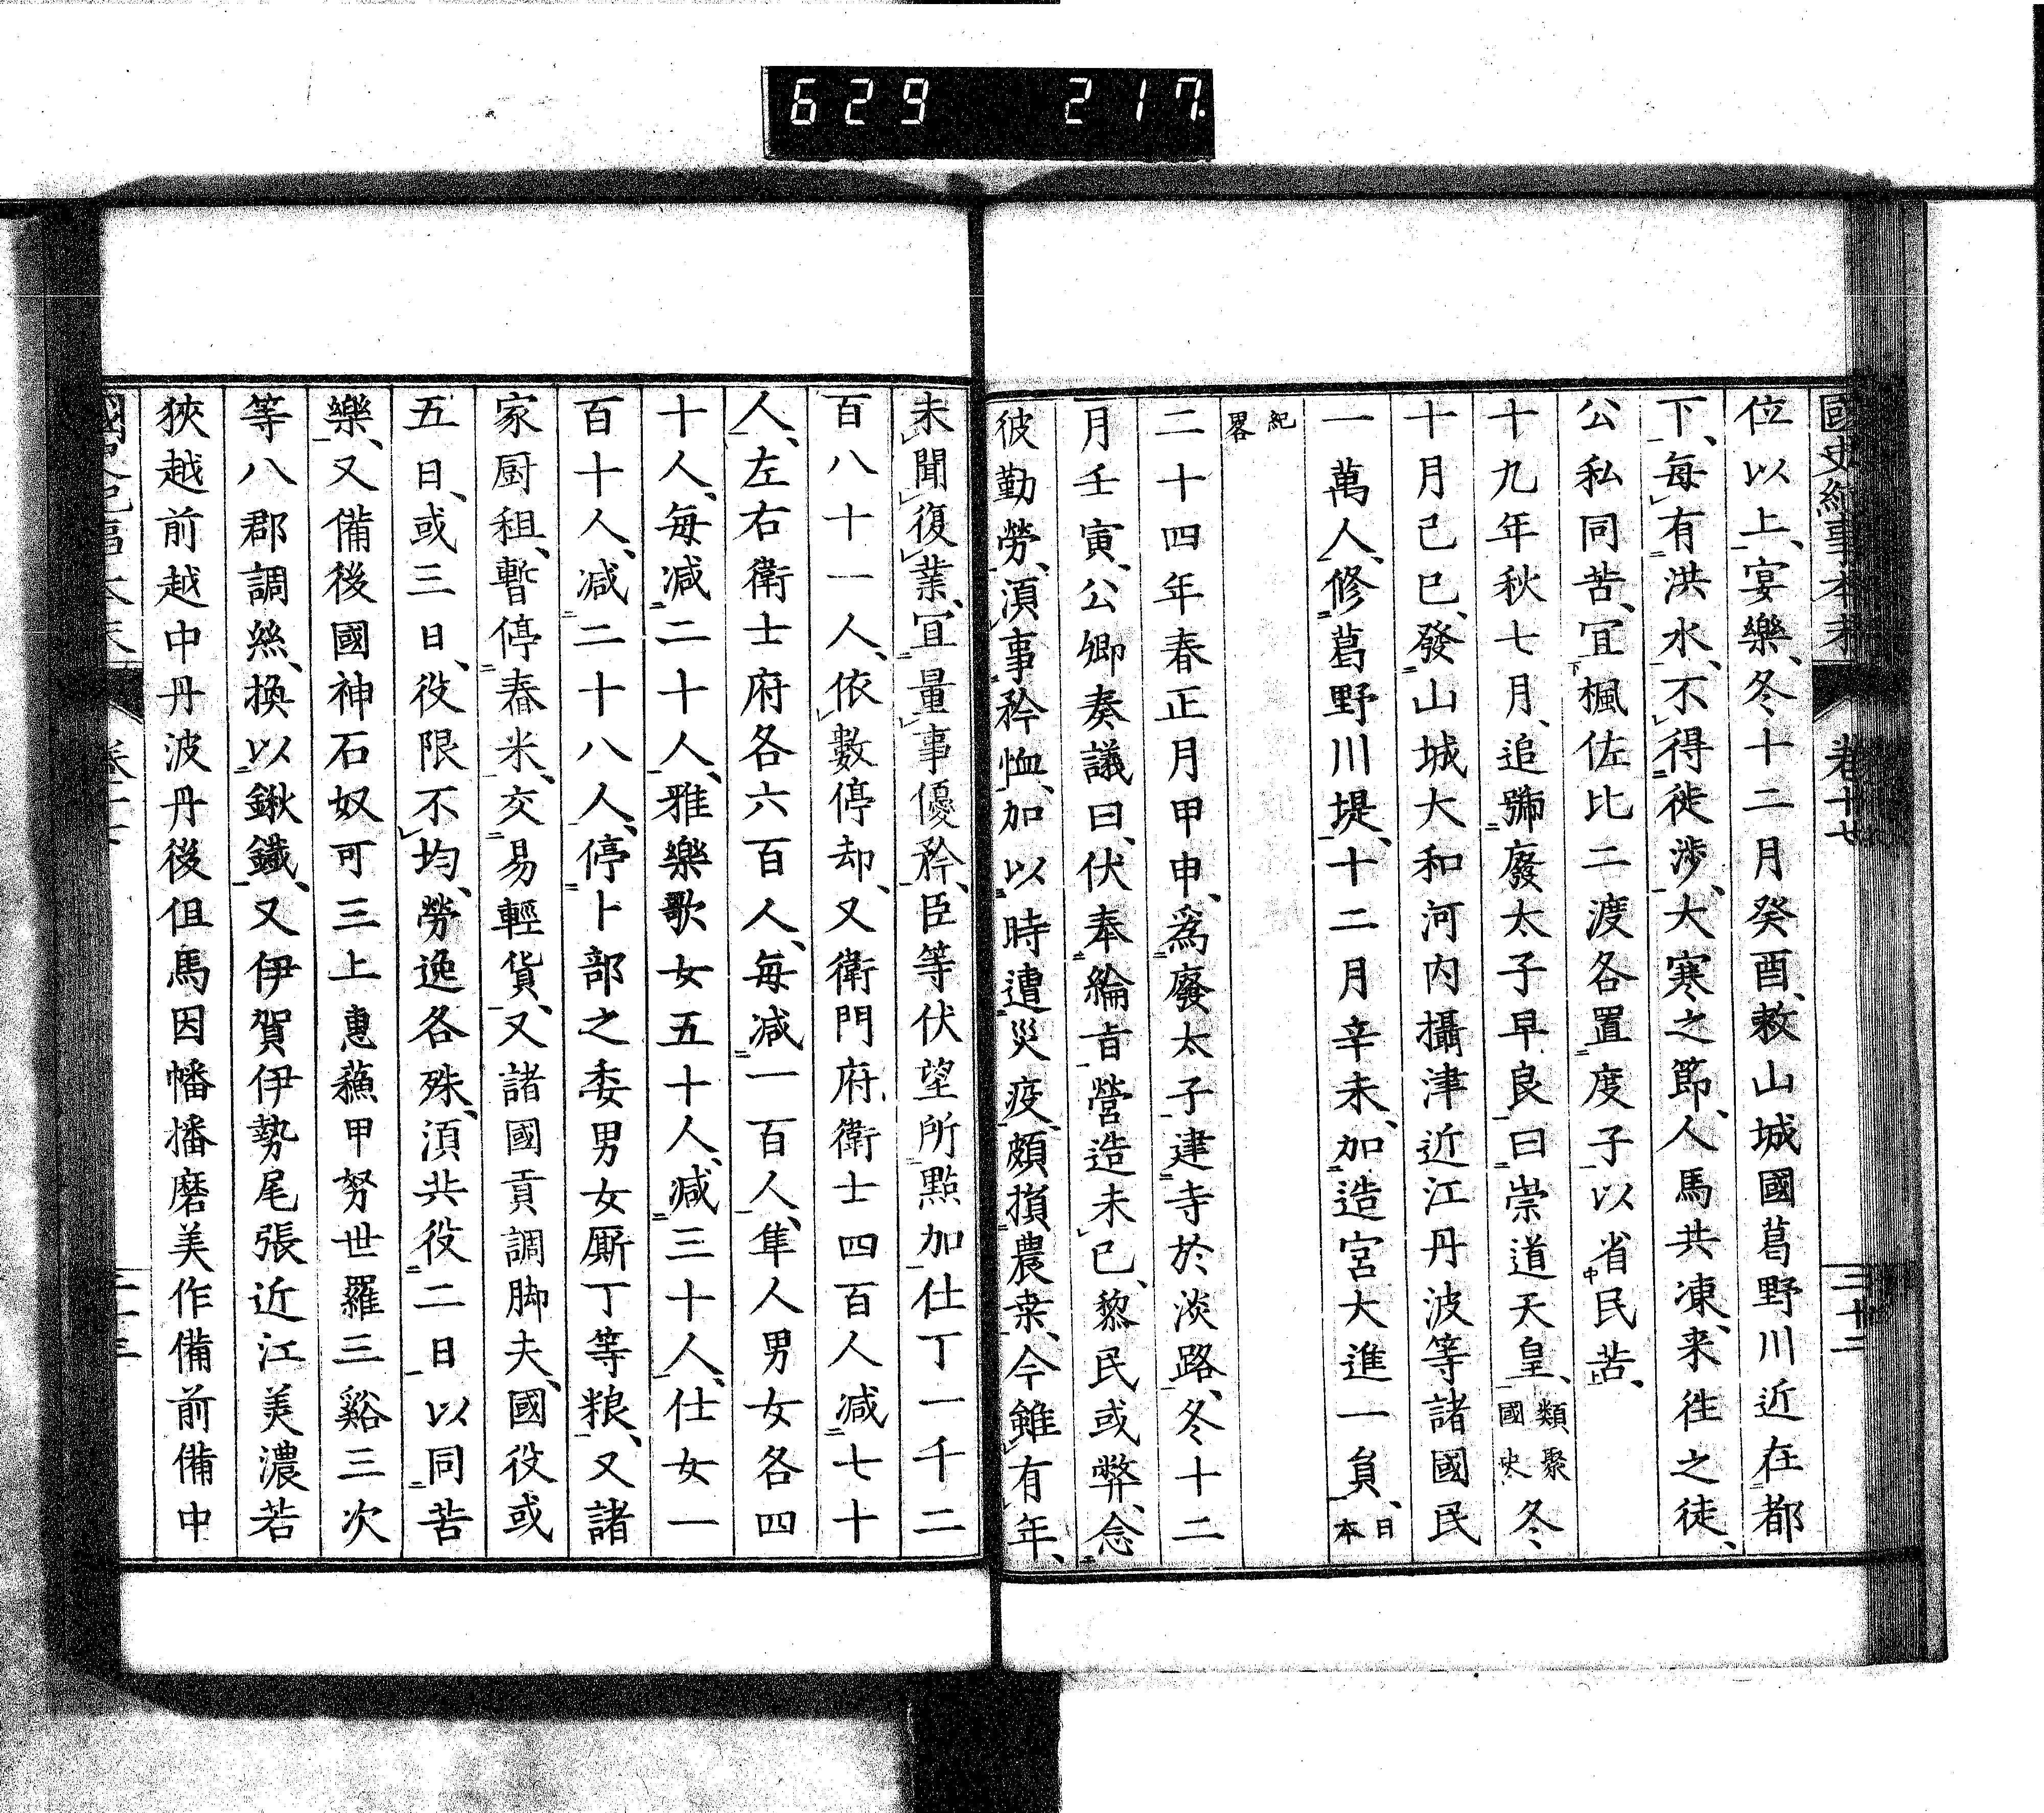 629 217
國史紀事本末 卷十七 三十二
位以上、宴樂、冬十二月癸酉、敕山城國葛野川近在都
下、每有洪水、不得徙渉、大寒之節、人馬共凍、来往之徒、
公私同苦、宜楓佐比二渡各置度子以省民苦、
十九年秋七月、追號廢太子早良曰崇道天皇、類聚國史冬
十月己巳、發山城大和河内攝津近江丹波等諸國民
一萬人、修葛野川堤、十二月辛未、加造宮大進一員、日本
紀畧
二十四年春正月甲申、爲廢太子建寺於淡路、冬十二
月壬寅、公卿奏議曰、伏奉綸旨營造未已、黎民或弊、念
彼勤勞、湏事矜恤、加以時遭災疫、頗損農桒、今雖有年、
未聞復業、宜量事優矜、臣等伏望所點加仕丁一千二
百八十一人、依數停却、又衛門府衛士四百人減七十
人、左右衛士府各六百人、每減一百人、隼人男女各四
十人、每減二十人、雅樂歌女五十人、減三十人、仕女一
百十人、減二十八人、停卜部之委男女厮丁等粮、又諸
家厨租、暫停舂米、交易輕貨、又諸國貢調脚夫、國役或
五日、或三日、役限不均、勞逸各殊、湏共役二日以同苦
樂、又備後國神石奴可三上惠蘓甲努世羅三谿三次
等八郡調絲、換以鍬鐵、又伊賀伊勢尾張近江美濃若
狹越前越中丹波丹後但馬因幡播磨美作備前備中